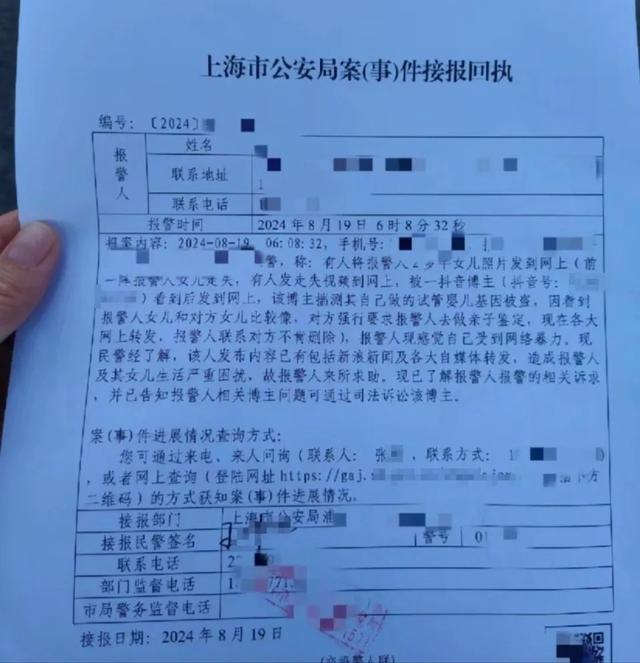 上海市公安局案(事)件接报回执
编号：〔2024〕
报警人
姓名
联系地址
1
联系电话
报警时间 2024年8月19日6时8分32秒
报案内容：2024-08-19 06:08:32，手机号：
警，称：有人将报警人2多岁女儿照片发到网上（前
一阵报警人女儿走失，有人发走失视频到网上，被一抖音博主（抖音号：
）看到后发到网上，该博主揣测其自己做的试管婴儿基因被盗，因看到
报警人女儿和对方女儿比较像，对方强行要求报警人去做亲子鉴定，现在各大
网上转发，报警人联系对方不肯删除），报警人现感觉自己受到网络暴力。现
民警经了解，该人发布内容已有包括新浪新闻及各大自媒体转发，造成报警人
及其女儿生活严重困扰，故报警人来所求助。现已了解报警人报警的相关诉求
，并已告知报警人相关博主问题可通过司法诉讼该博主。
案（事）件进展情况查询方式：
您可通过来电、来人问询（联系人：张，联系方式：1
），或者网上查询（登陆网址https://gaj.
二维码）的方式获知案（事）件进展情况。
接报部门 上海市公安局浦
接报民警签名 警号 01
联系电话 2
部门监督电话 1
市局警务监督电话
接报日期：2024年8月19日